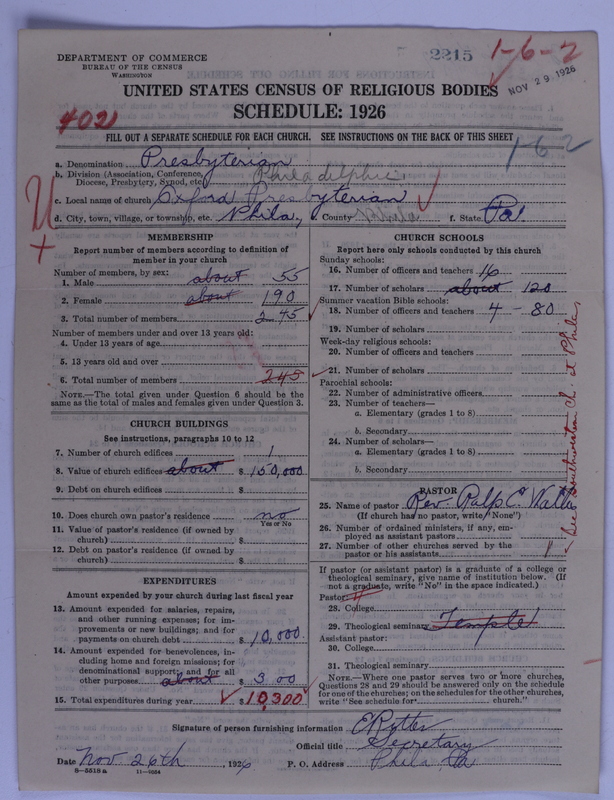 2215 1-6-2
NOV 29 1926
DEPARTMENT OF COMMERCE
BUREAU OF THE CENSUS
WASHINGTON
UNITED STATES CENSUS OF RELIGIOUS BODIES
SCHEDULE: 1926
402
FILL OUT A SEPARATE SCHEDULE FOR EACH CHURCH. SEE INSTRUCTIONS ON THE BACK OF THIS SHEET
1-6-2
a. Denomination Presbyterian
b. Division (Association, Conference, Diocese, Presbytery, Synod, etc.) Philadelphia
c. Local name of church Oxford Presbyterian
d. City, town, village, or township, etc. Phila, County Phila f. State Pa.
MEMBERSHIP
Report number of members according to definition of
member in your church
Number of members, by sex:
1. Male about 55
2. Female about 190
3. Total number of members 245
Number of members under and over 13 years old:
4. Under 13 years of age
5. 13 years old and over
6. Total number of members 245
NOTE.—The total given under Question 6 should be
same as the total of males and females given under Question 3.
CHURCH BUILDINGS
See instructions, paragraphs 10 to 12
7. Number of church edifices 1
8. Value of church edifices about $ 150,000
9. Debt on church edifices $
10. Does church own pastor's residence no
Yes or No
11. Value of pastor's residence (if owned by
church) $
12. Debt on pastor's residence (if owned by
church) $
EXPENDITURES
Amount expended by your church during last fiscal year
13. Amount expended for salaries, repairs,
and other running expenses; for im-
provements or new buildings; and for
payments on church debt $ 10,000
14. Amount expended for benevolences, in-
cluding home and foreign missions; for
denominational support; and for all
other purposes about $ 300
15. Total expenditures during year $ 10,300
CHURCH SCHOOLS
Report here only schools conducted by this church
Sunday schools:
16. Number of officers and teachers 16
17. Number of scholars about 120
Summer vacation Bible schools:
18. Number of officers and teachers 4 - 80
19. Number of scholars
Week-day religious schools:
20. Number of officers and teachers
21. Number of scholars
Parochial schools:
22. Number of administrative officers
23. Number of teachers—
a. Elementary (grades 1 to 8)
b. Secondary
24. Number of scholars—
a. Elementary (grades 1 to 8)
b. Secondary
PASTOR
25. Name of pastor Rev. Ralp C.
(If church has no pastor, write "None")
26. Number of ordained ministers, if any, em-
ployed as assistant pastors
27. Number of other churches served by the
pastor or his assistants 1
See Southwestern Ch. at Phila
If pastor (or assistant pastor) is a graduate of a college or
theological seminary, give name of institution below. (If
not a graduate, write "No" in the space indicated.)
Pastor:
28. College
29. Theological seminary Temple
Assistant pastor:
30. College
31. Theological seminary
NOTE.—Where one pastor serves two or more churches,
Questions 28 and 29 should be answered only on the schedule
for one of the churches; on the schedules for the other churches,
write "See schedule for church."
Signature of person furnishing information
Official title Secretary
Date Nov. 26th, 1926 P. O. Address Phila, Pa
8-5518a 11-9024